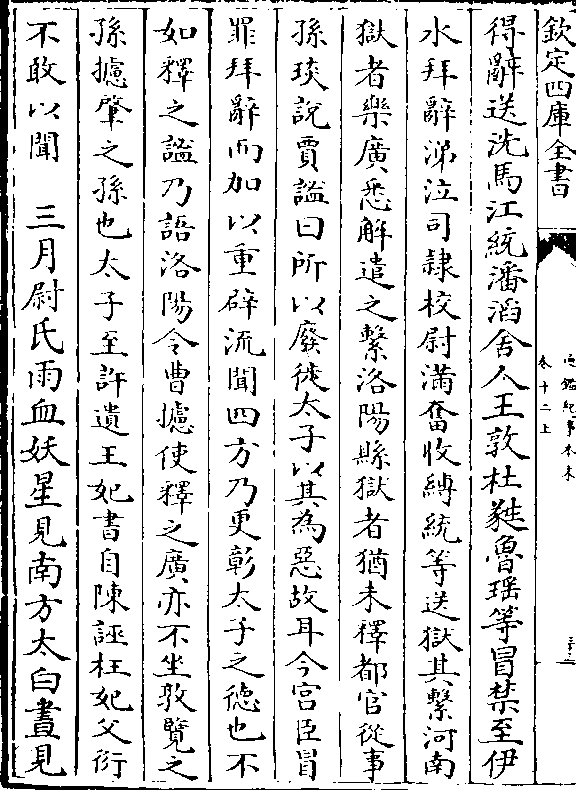 欽定四庫全書
通鑑紀事本末
卷十二上
得辭送洗馬江統潘滔舍人王敦杜蕤魯瑶等冒禁至伊
水拜辭涕泣司隸校尉滿奮收縛統等送獄其繫河南
獄者樂廣悉解遣之繫洛陽縣獄者猶未釋都官從事
孫琰說賈謐曰所以廢徙太子以其為惡故耳今宫臣冒
罪拜辭而加以重辟流聞四方乃更彰太子之德也不
如釋之謐乃語洛陽令曹攄使釋之廣亦不坐敦覽之
孫攄肇之孫也太子至許遺王妃書自陳誣枉妃父衍
不敢以聞　三月尉氏雨血妖星見南方太白晝見